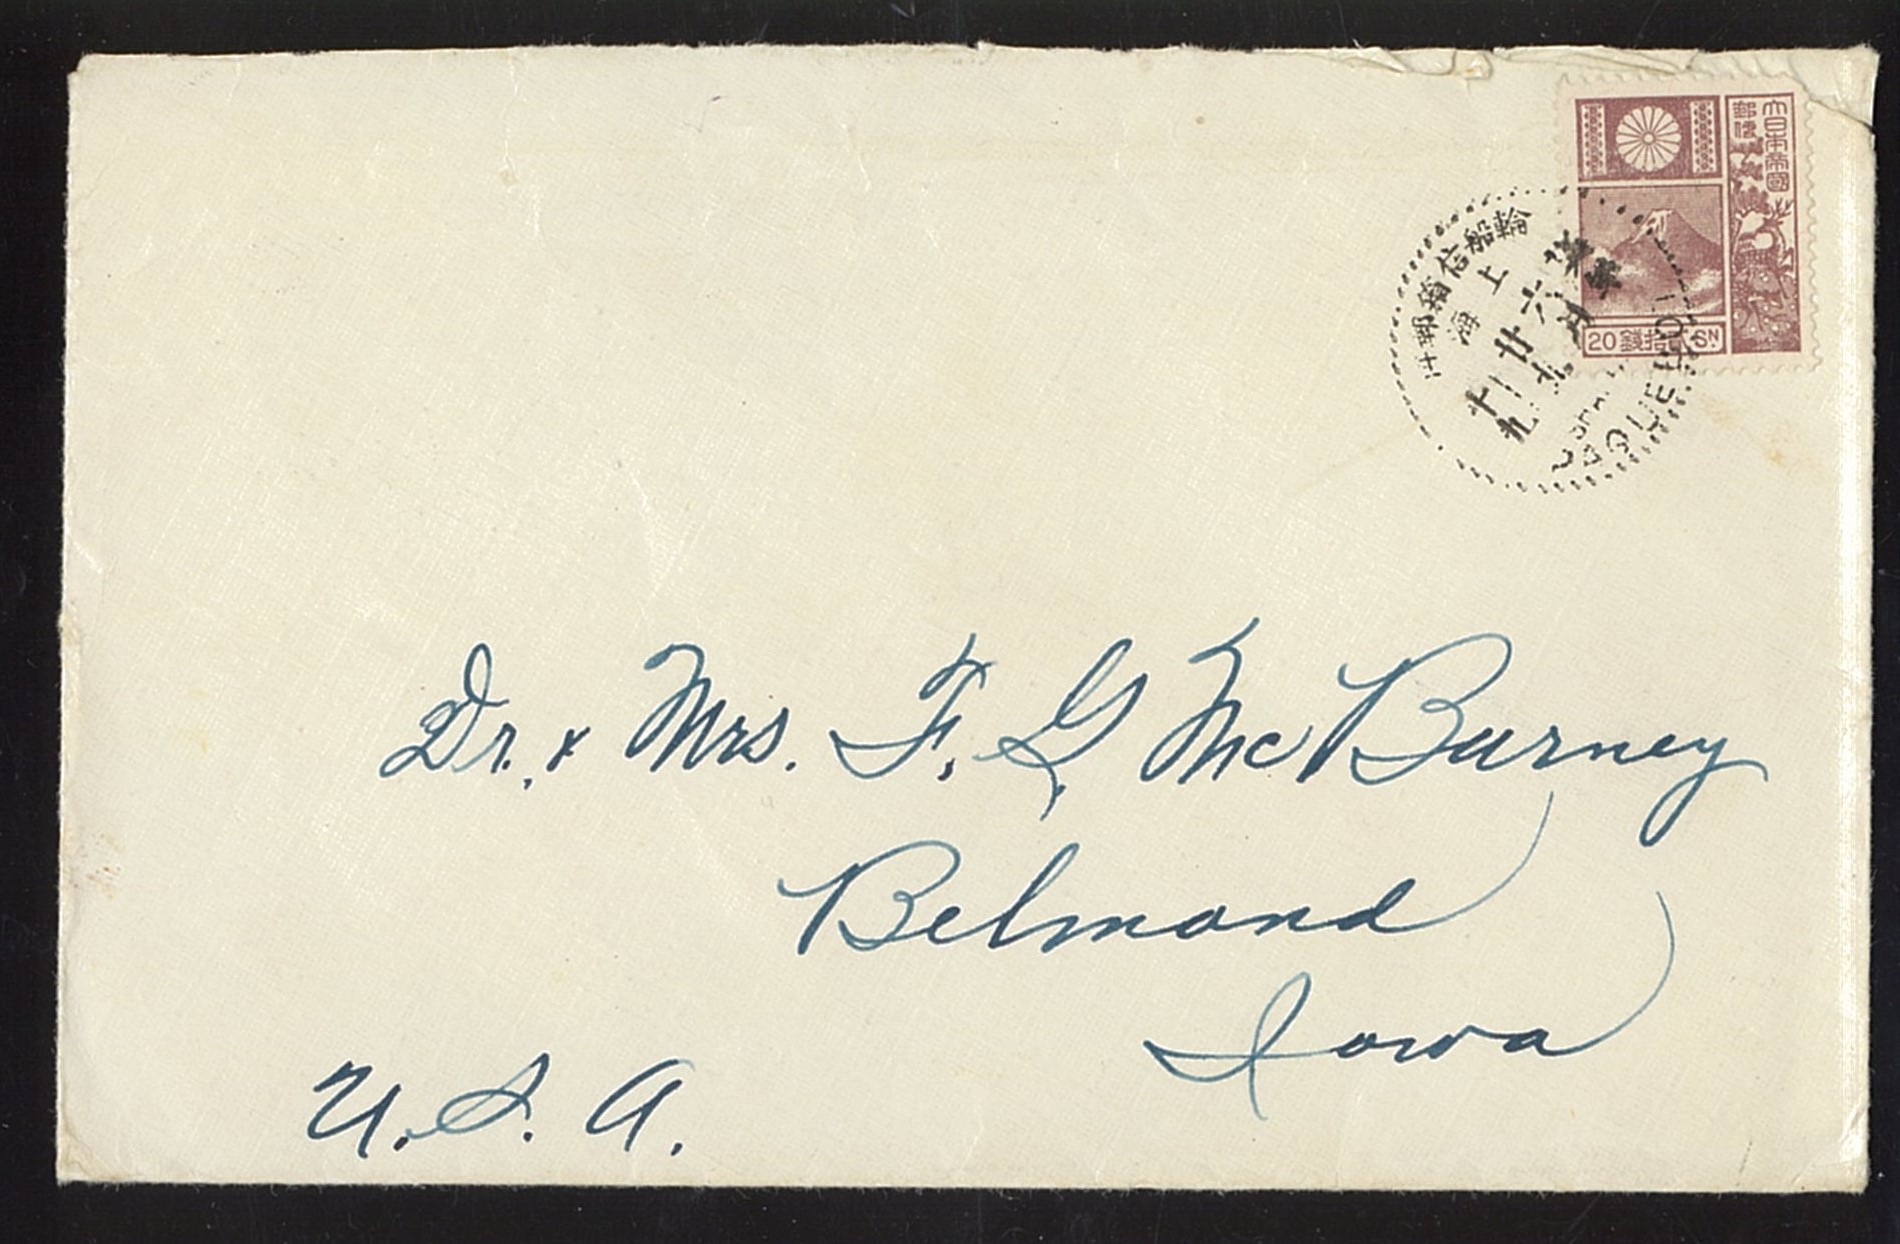 大日本帝國
郵便
20 錢拾貳 SN
輪船信箱郵件
上海
六月
廿
十
九
PAQUEBOT
Dr. & Mrs. F. G. McBurney
Belmond
Iowa
U. S. A.